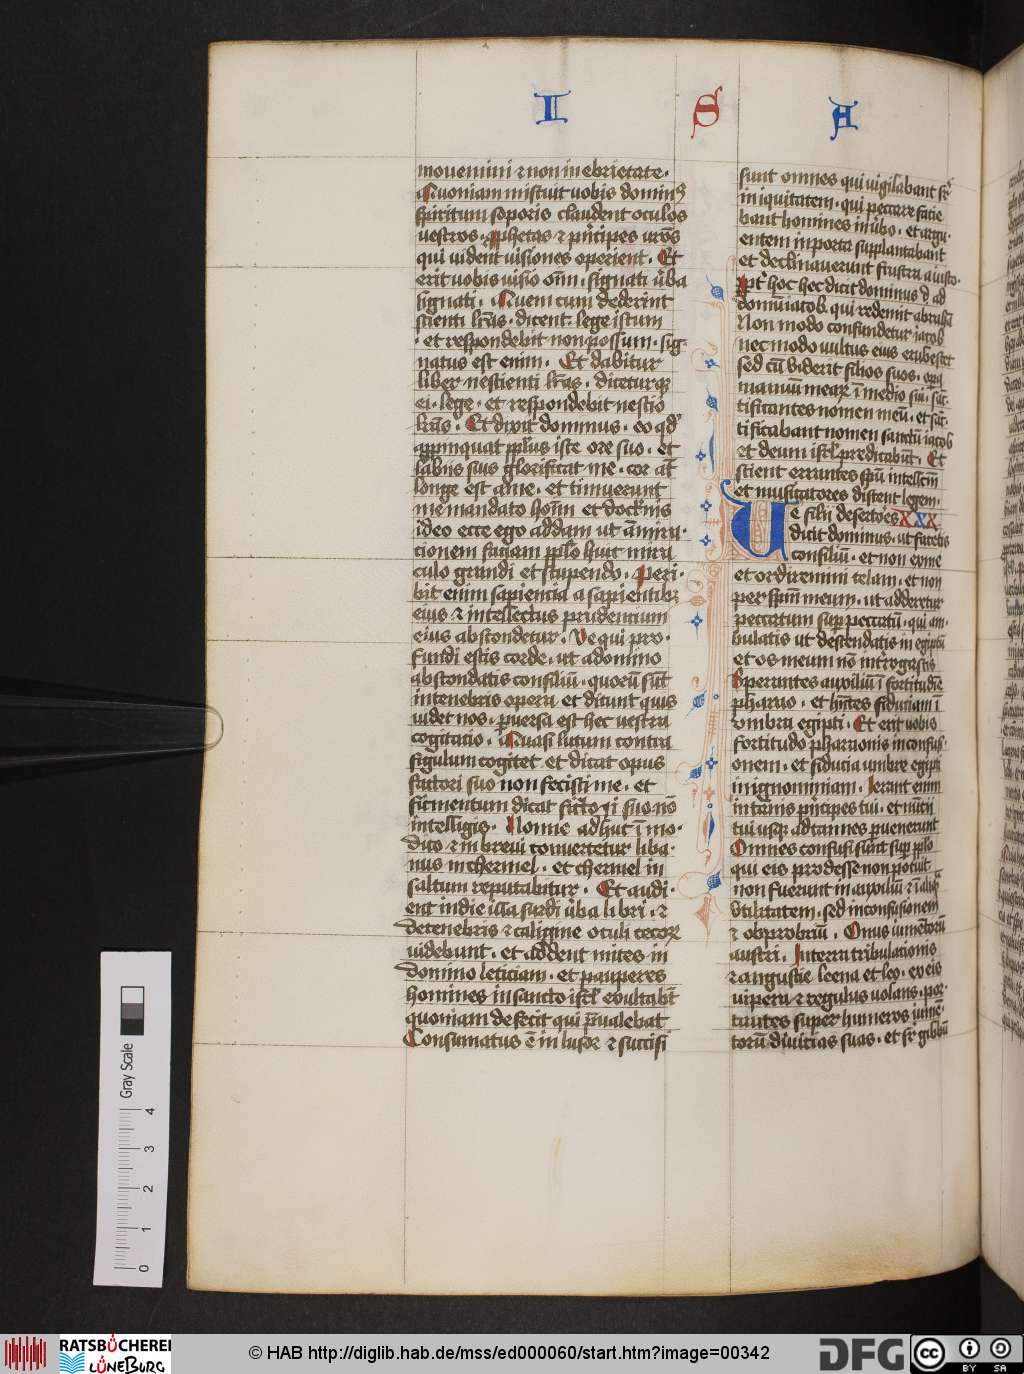 I S A
mouemini ⁊ non in ebrietate.
Quoniam miscuit uobis dominꝰ
spiritum soporis claudent oculos
uestros. ꝓphetas ⁊ pͥncipes ur̄os
qui uident uisiones operient. Et
erit uobis uisio om̄i. signati ūba
signati. Quem cum dederint
scienti lr̄as. dicent. lege istum
. et respondebit non possum. sig-
natus est enim. Et dabitur
liber nescienti lr̄as. diceturqꝫ
ei. lege. et respondebit nescio
lr̄as. Et dixit dominus. eo qd̓
appinquat pp̄lus iste ore suo. et
labiis suis glorificat me. cor at̄
longe est ame. et timuerunt
me mandato hoīm et doctͥnis
ideo ecce ego addam ut āmira-
cionem faciam pp̄lo huic mira
culo grandi et stupendo. Peri-
bit enim sapiencia a sapientibꝫ
eius ⁊ intellectus prudentium
eius abscondetur. Ve qui pro-
fundi estis corde. ut a domino
abscondatis consiliū. quorū sūt
in tenebris opera et dicunt quis
uidet nos. ꝑuersa est hec uestra
cogitacio. Quasi lutum contra
figulum cogitet et dicat opus
factori suo non fecisti me. et
figmentum dicat fictori suo nō
intelligis. Nonne adhuc ī mo-
dico ⁊ in breui conuertetur liba-
nus in chermel. et chermel in
saltum reputabitur. Et audi-
ent in die illa surdi ūba libri. ⁊
de tenebris ⁊ caligine oculi cecoꝝ
uidebunt. et addent mites in
domino leticiam. et pauperes
homines in sancto isrl̄ exultabūt
quoniam defecit qui p̄ualebat
Consumatus ē inlusor ⁊ succisi
sunt omnes qui uigilabant sr̄
iniquitatem. qui peccare facie
bant homines in ūbo. et argu-
entem in porta supplantabant
et declinauerunt frustra a iusto.
Ppt̓ hoc hec dicit dominus d̓ ad
domū iacob. qui redemit abrahā
Non modo confundetur iacob
nec modo uultus eius erubescet
sed cū uiderit filios suos. opa
manuū meaꝝ ī medio sui. sāc-
tificantes nomen meū. et sāc-
tificabant nomen sanctū iacob
et deum isrl̄ predicabūt. Et
scient errantes spū intellectū
et mussitatores discent legem.
Ue filii desertores XXX
dicit dominus. ut facetis
consiliū. et non ex me
et ordiremini telam. et non
per spm̄ meum. ut adderetur
peccatum sup peccatū. qui am-
bulatis ut descendatis in egiptū
et os meum nō int̓rogastis
Sperantes auxiliū ī fortitudīe
pharao. et hn̄tes fiduciam ī
ombra egipti. Et erit uobis
fortitudo pharaonis in confusi-
onem. et fiducia umbre egipti
in ignominiam. Erant enim
in tanis pͥncipes tui. et nūcii
tui usqꝫ ad tannes ꝑuenerunt
Omnes confusi sunt sup pp̄lo
qui eis prodesse non potuit
non fuerunt in auxiliū ⁊ ī aliqͣ
Vtilitatem. sed in confusionem
⁊ obprobriū. Onus iumētorū
austri. In terra tribulacionis
⁊ angustie leena et leo. ex eis
uipera ⁊ regulus uolans. por-
tantes super humeros iumē-
torū diuicias suas. et sr̄ gibbū
Gray Scale
0 1 2 3 4
RATSBÜCHEREI
LÜNEBURG
© HAB http://diglib.hab.de/mss/ed000060/start.htm?image=00342
DFG
cc BY SA